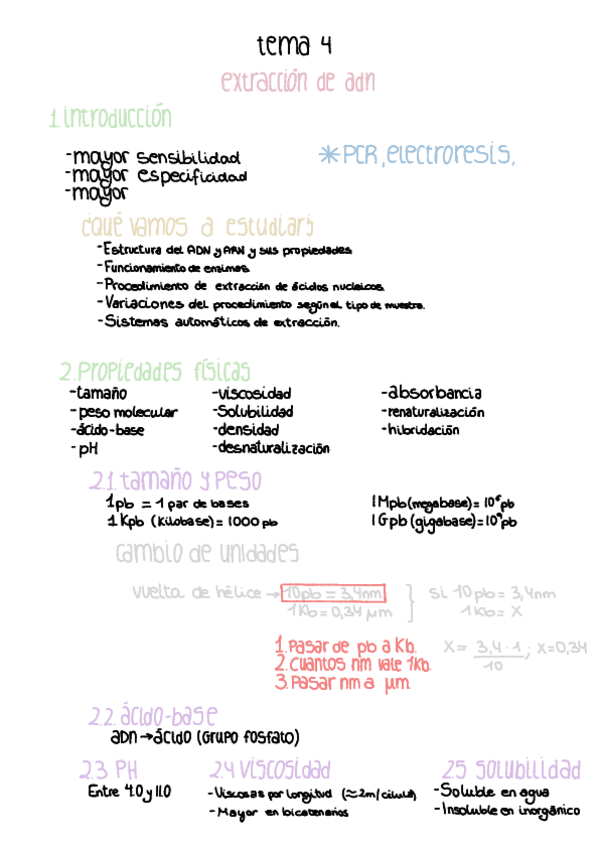 tema 4
extracción de adn
1. introducción
-mayor sensibilidad
-mayor especificidad
-mayor
*PCR, electroresis,
¿qué vamos a estudiar?
-Estructura del ADN y ARN y sus propiedades
-Funcionamiento de enzimas.
-Procedimiento de extracción de ácidos nucleicos.
-Variaciones del procedimiento según el tipo de muestra.
-Sistemas automáticos de extracción.
2. Propiedades físicas
-tamaño
-peso molecular
-ácido-base
-pH
-viscosidad
-Solubilidad
-densidad
-desnaturalización
-absorbancia
-renaturalización
-hibridación
2.1. tamaño y peso
1pb = 1 par de bases
1 Kpb (Kilobase) = 1000 pb
1 Mpb (megabase) = 10⁶ pb
1 Gpb (gigabase) = 10⁹ pb
cambio de unidades
vuelta de hélice → 10pb = 3,4nm
1Kb = 0,34 μm
si 10pb = 3,4nm
1Kb = X
1. Pasar de pb a Kb.
2. Cuantos nm vale 1Kb.
3. Pasar nm a μm
X = 3,4 · 1 / 10 ; X=0,34
2.2. ácido-base
ADN → ácido (Grupo Fosfato)
2.3 PH
Entre 4.0 y 11.0
2.4 viscosidad
-Viscosas por longitud (≈2m/célula)
-Mayor en bicatenarios
2.5 solubilidad
-Soluble en agua
-Insoluble en inorgánico